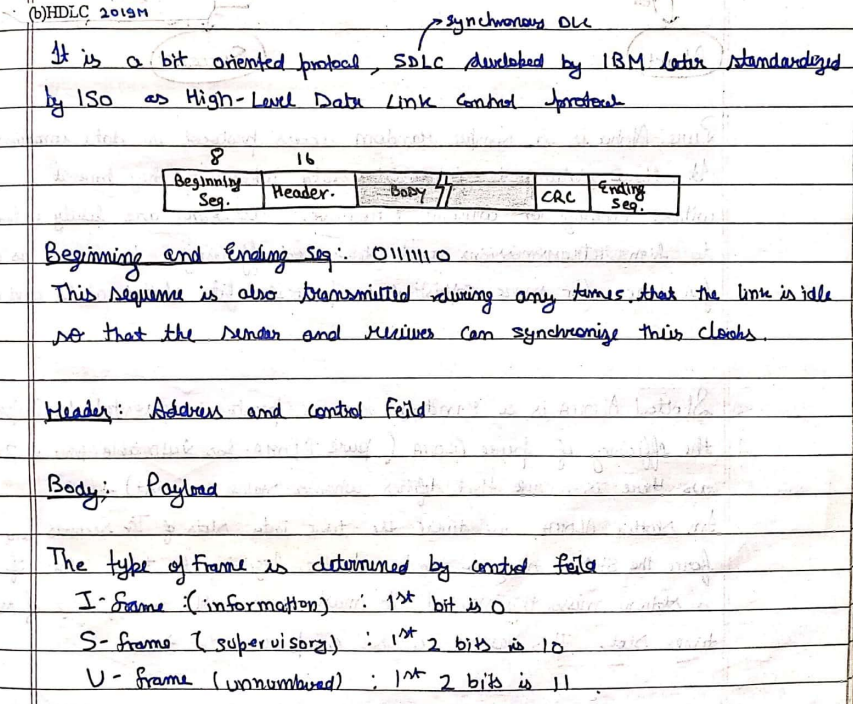 (b)HDLC 2019M
synchronous DLC
It is a bit oriented protocal, SDLC developed by IBM later standardized
by ISO as High-Level Data Link Control protocal
8 16
Beginning Seq. Header. BODY CRC Ending Seq.
Beginning and Ending Seq: 01111110
This sequence is also transmitted during any times that the link is idle
so that the sender and recives can synchronize their clocks.
Header: Address and control Feild
Body: Payload
The type of Frame is determined by control feild
I-frame :(information) : 1st bit is 0
S-frame (supervisory) : 1st 2 bits is 10
U-frame (unnumbured) : 1st 2 bits is 11